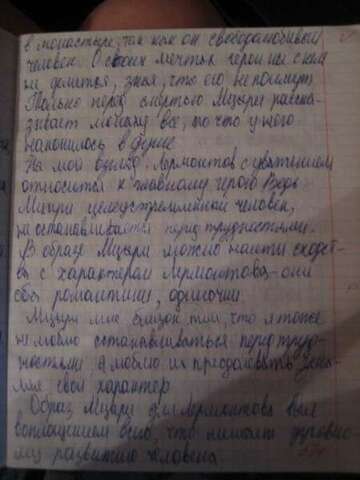 в монастыре, так как он свободолюбивый
человек. О своих мечтах герой ни с кем
не делится, зная, что его не поймут.
Только перед смертью Мцыри расска-
зывает монаху все, то что у него
накопилось в душе.
На мой взгляд, Лермонтов с уважением
относится к главному герою. Ведь
Мцыри целеустремлённый человек,
не останавливается перед трудностями.
В образе Мцыри можно найти сходст-
ва с характером Лермонтова - они
оба романтики, одиночки.
Мцыри мне близок тем, что я тоже
не люблю останавливаться перед труд-
ностями, а люблю их преодолевать,
мяя свой характер.
Образ Мцыри для Лермонтова был
воплощением всего, что мешает духовно-
му развитию человека.